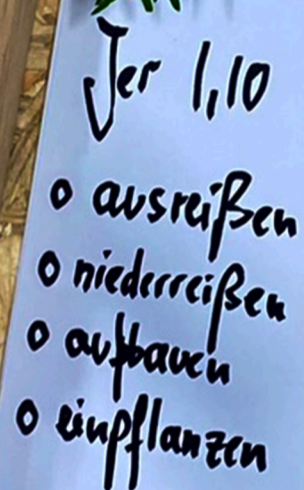 Jer 1,10
o ausreißen
o niederreißen
o aufbauen
o einpflanzen